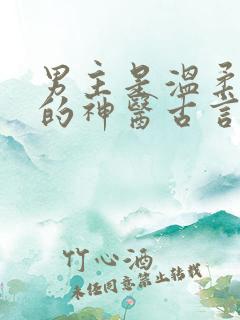 男主是温柔
的神醫古言
竹心酒
未经同意禁止转载